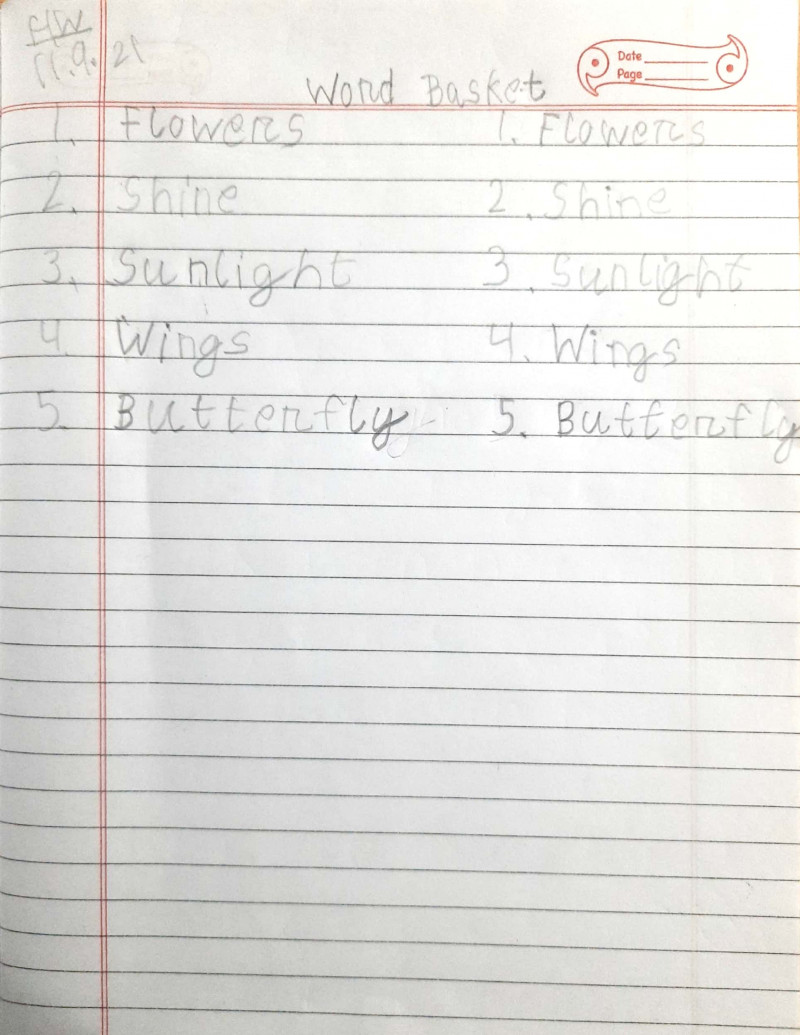 H/W
11.9.21
Date
Page
Word Basket
1. Flowers 1. Flowers
2. Shine 2. Shine
3. Sunlight 3. Sunlight
4. Wings 4. Wings
5. Butterfly 5. Butterfly